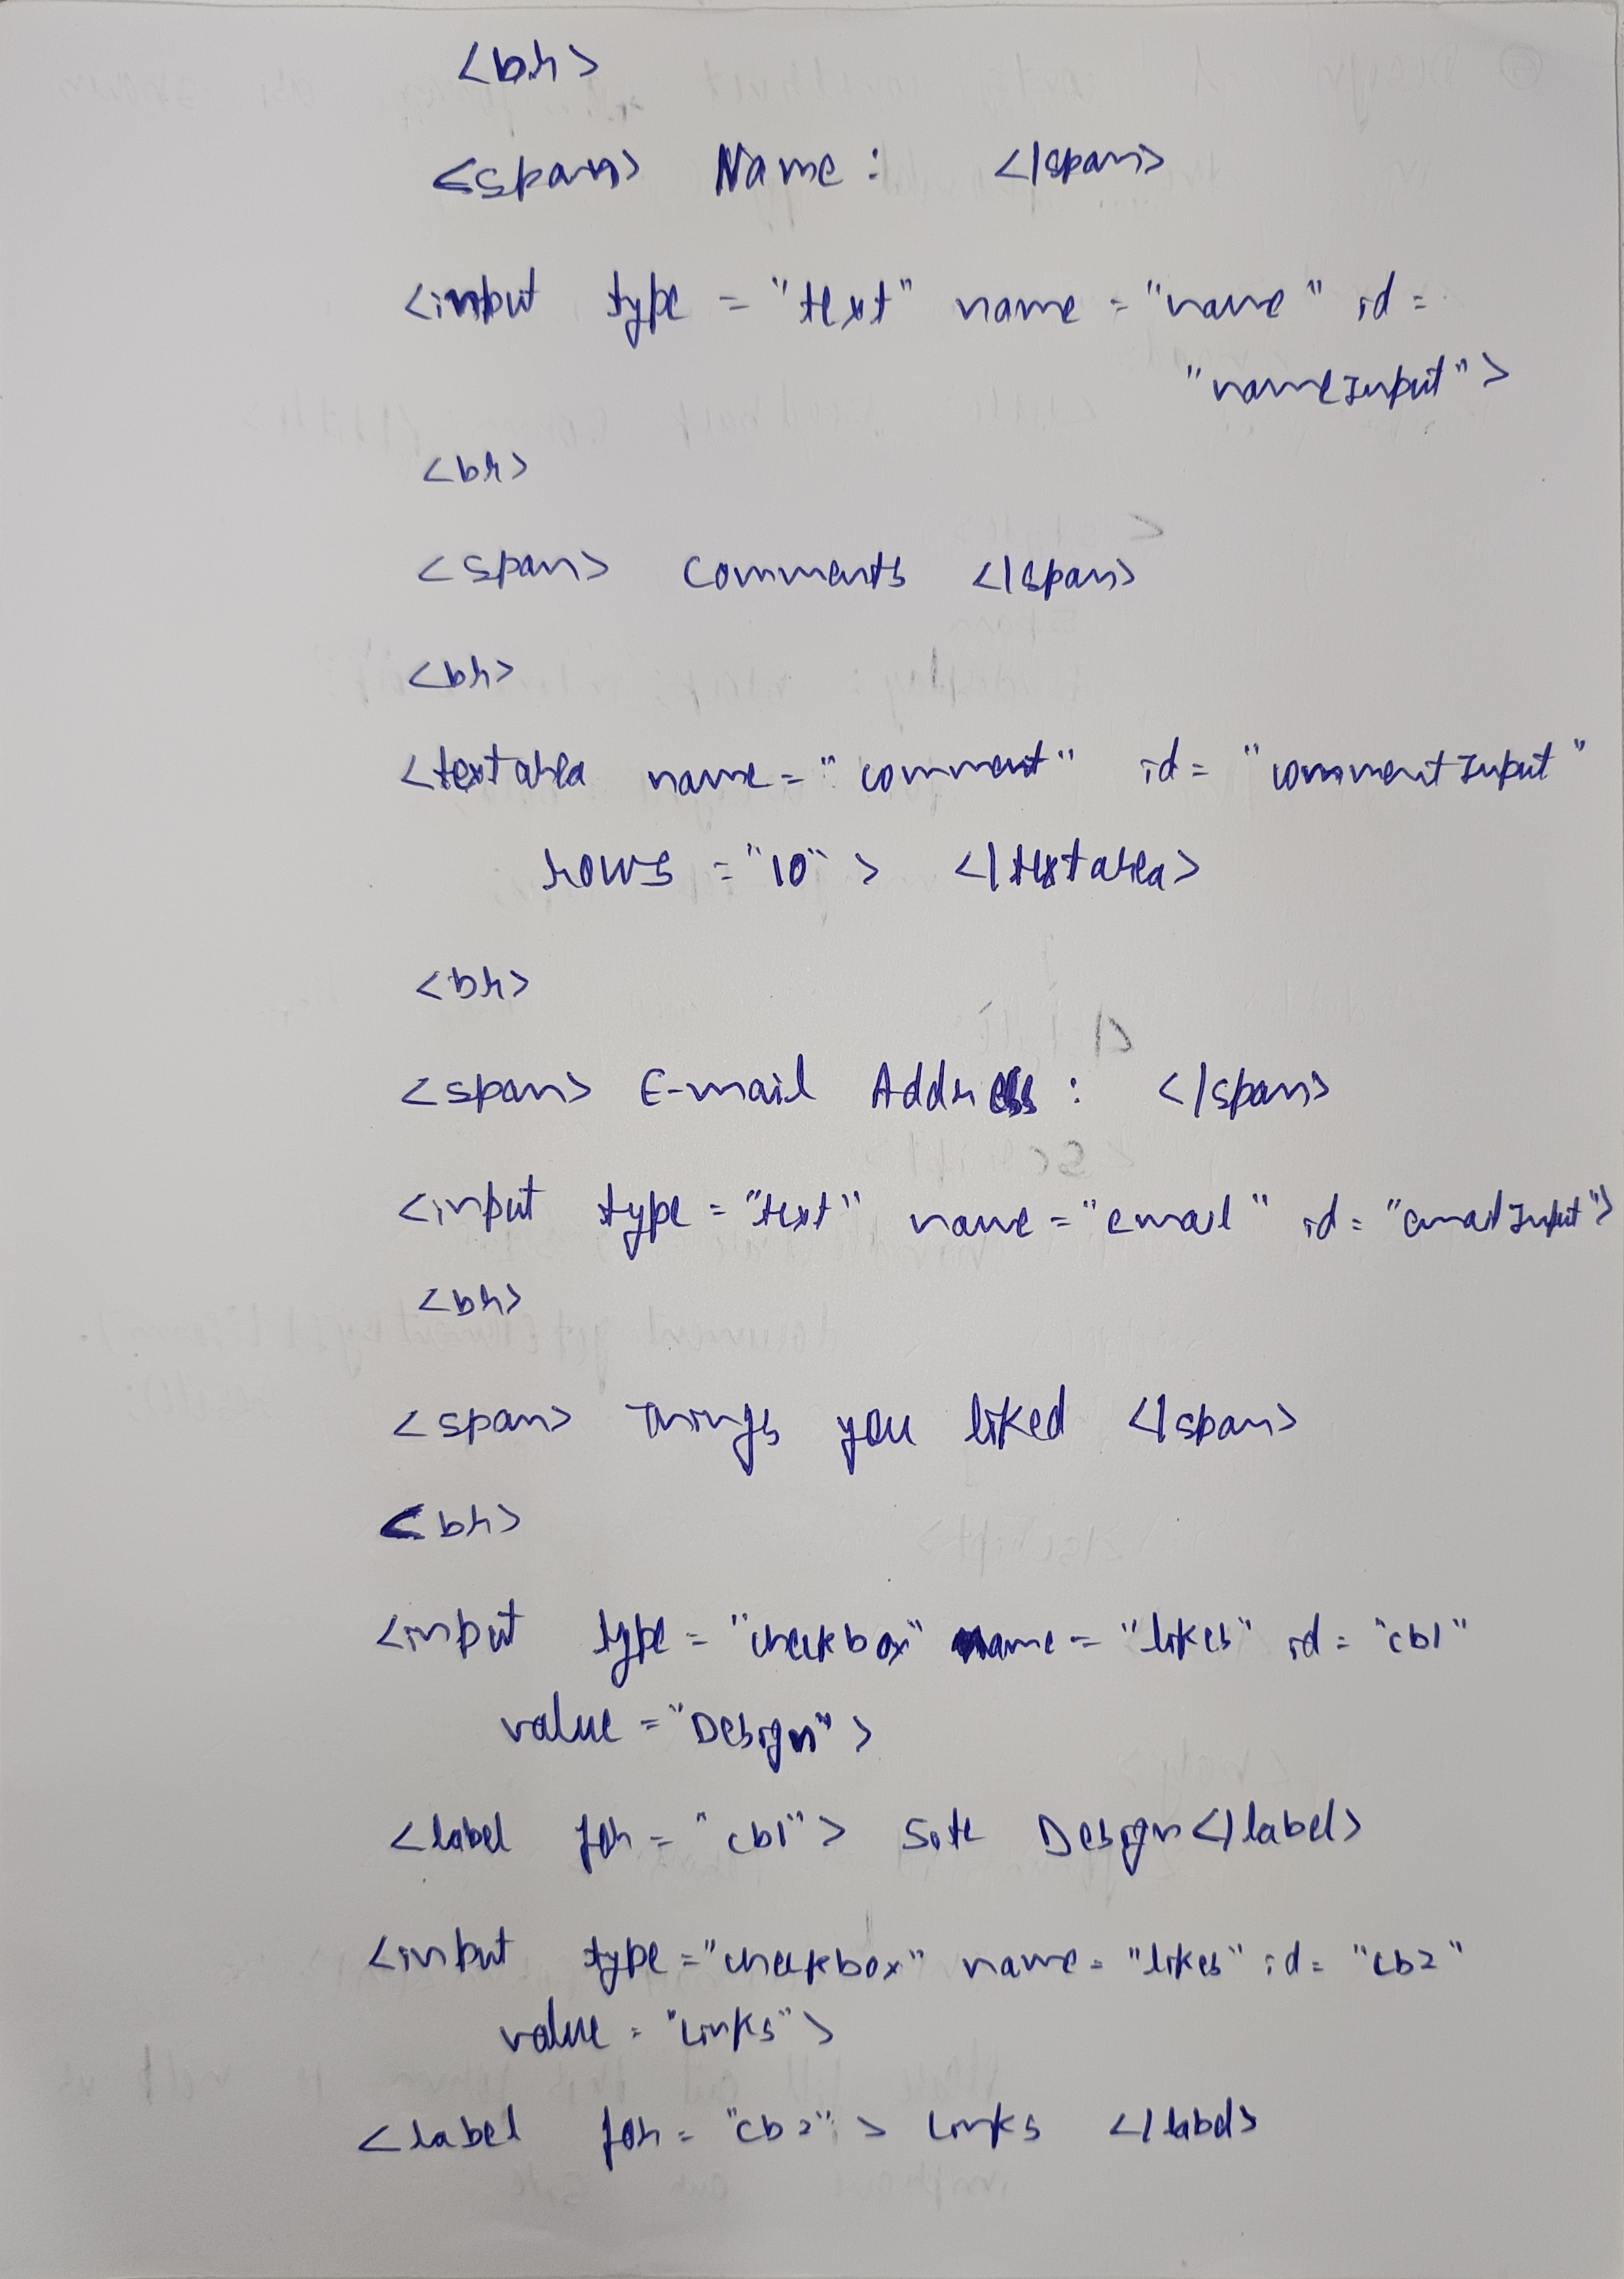 <br>
<span> Name : </span>
<input type = "text" name = "name" id =
"nameInput">
<br>
<span> Comments </span>
<br>
<textarea name = "comment" id = "commentInput"
rows = "10" > </textarea>
<br>
<span> E-mail Address : </span>
<input type = "text" name = "email" id = "emailInput">
<br>
<span> Things you liked </span>
<br>
<input type = "checkbox" name = "likes" id = "cb1"
value = "Design" >
<label for = "cb1"> Site Design </label>
<input type = "checkbox" name = "likes" id = "cb2"
value = "Links" >
<label for = "cb2" > Links </label>